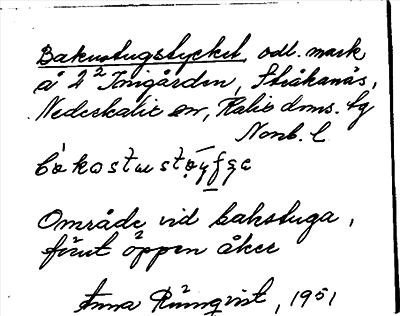 Bakustugstycket, odl. mark
å 2² Inigården, Stråkanäs,
Nederkalix sn, Kalix dms. tg
Nonb. l
Område vid bakstuga,
förut öppen åker
Anna Rönnqvist, 1951